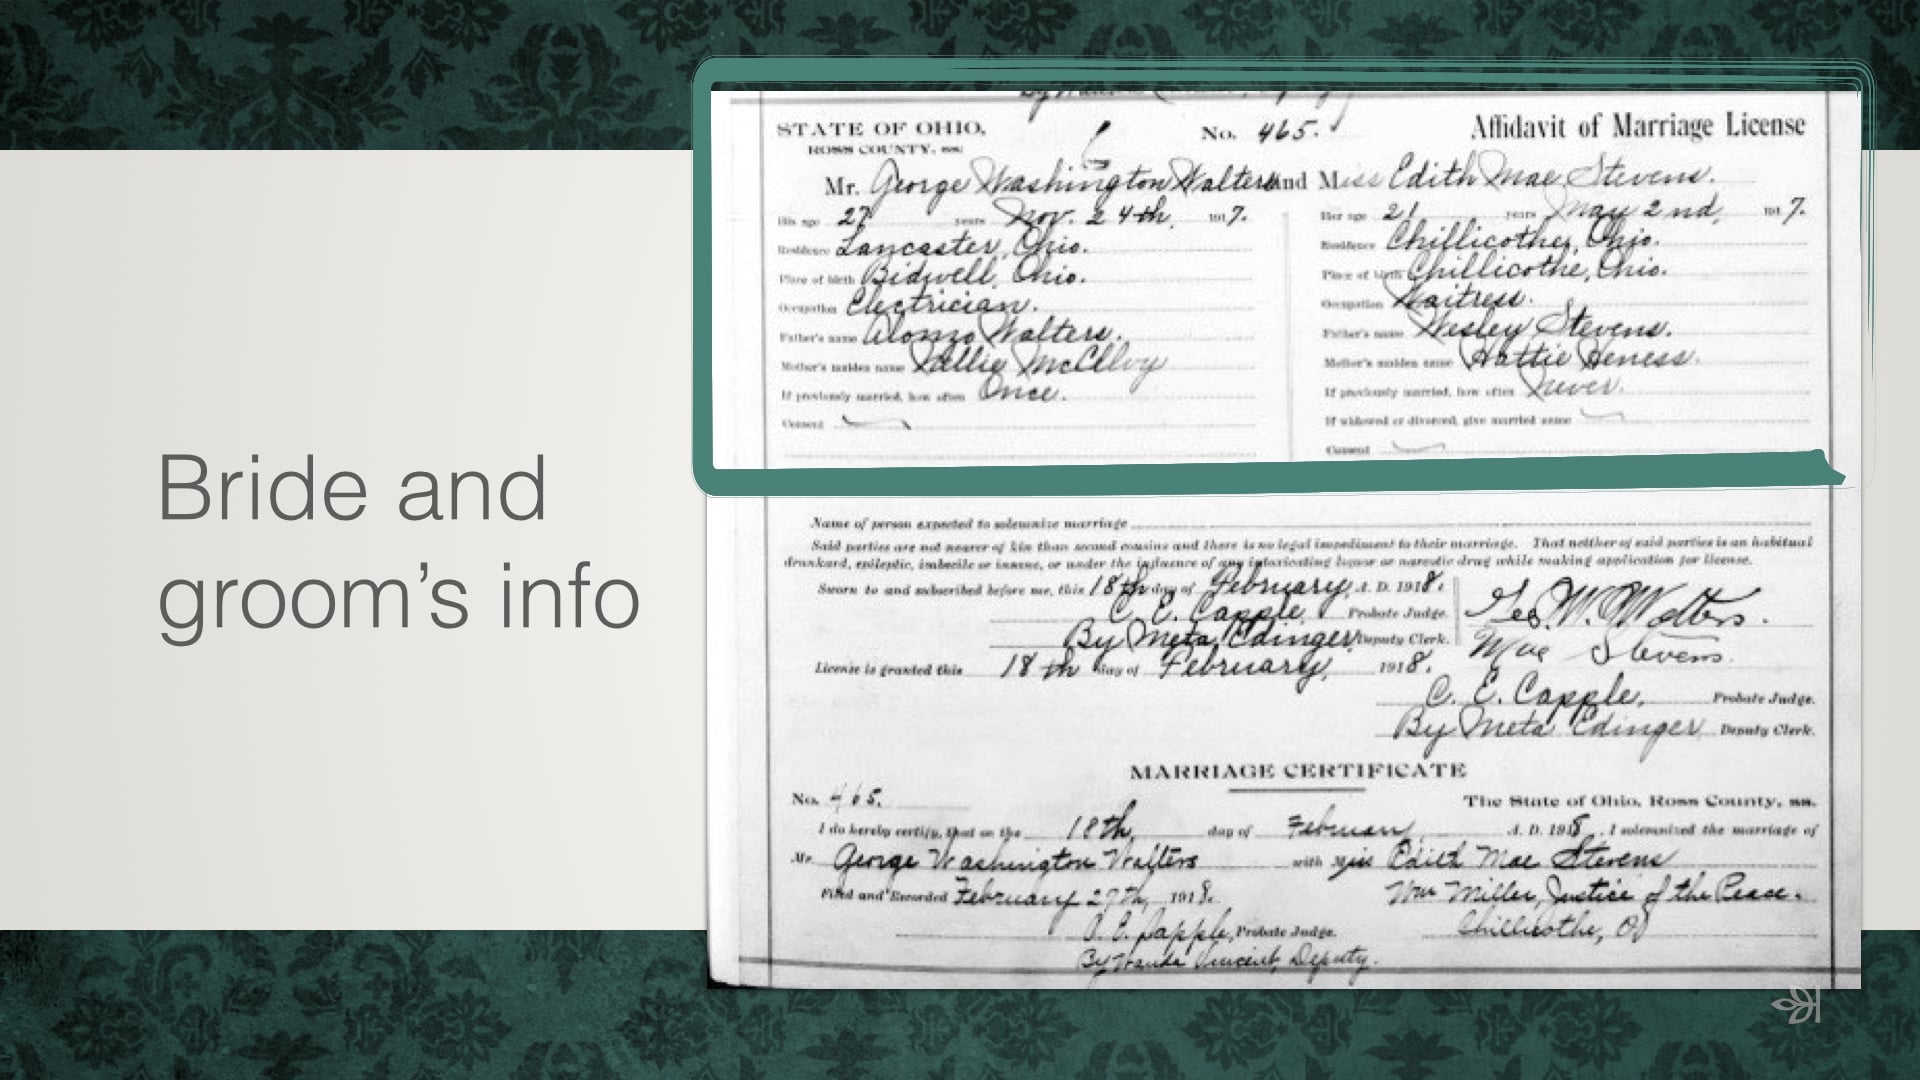 Bride and
groom’s info
STATE OF OHIO,
ROSS COUNTY, ss:
No. 465.
Affidavit of Marriage License
Mr. George Washington Walters and Miss Edith Mae Stevens.
His age 27 years Nov. 24th, 1917.
Residence Lancaster, Ohio.
Place of birth Bidwell, Ohio.
Occupation Electrician.
Father's name Alonzo Walters.
Mother's maiden name McElloy
If previously married, how often Once.
Consent
Her age 21 years May 2nd, 1917.
Residence Chillicothe, Ohio.
Place of birth Chillicothe, Ohio.
Occupation Waitress.
Father's name Wesley Stevens.
Mother's maiden name Hattie Heness.
If previously married, how often Never.
If widowed or divorced, give married name
Consent
Name of person expected to solemnize marriage
Said parties are not nearer of kin than second cousins and there is no legal impediment to their marriage. That neither of said parties is an habitual
drunkard, epileptic, imbecile or insane, or under the influence of any intoxicating liquor or narcotic drug while making application for license.
Sworn to and subscribed before me, this 18th day of February, A. D. 1918.
C. E. Capple, Probate Judge.
By Meta Edinger Deputy Clerk.
Geo. W. Walters.
Mae Stevens.
License is granted this 18th day of February, 1918.
C. E. Capple, Probate Judge.
By Meta Edinger Deputy Clerk.
MARRIAGE CERTIFICATE
No. 465.
The State of Ohio, Ross County, ss.
I do hereby certify, that on the 18th day of February A. D. 1918, I solemnized the marriage of
Mr. George Washington Walters with Miss Edith Mae Stevens
Filed and Recorded February 27th, 1918.
Wm Miller, Justice of the Peace.
C. E. Capple, Probate Judge.
Chillicothe, O
By Wanda Vincent, Deputy.